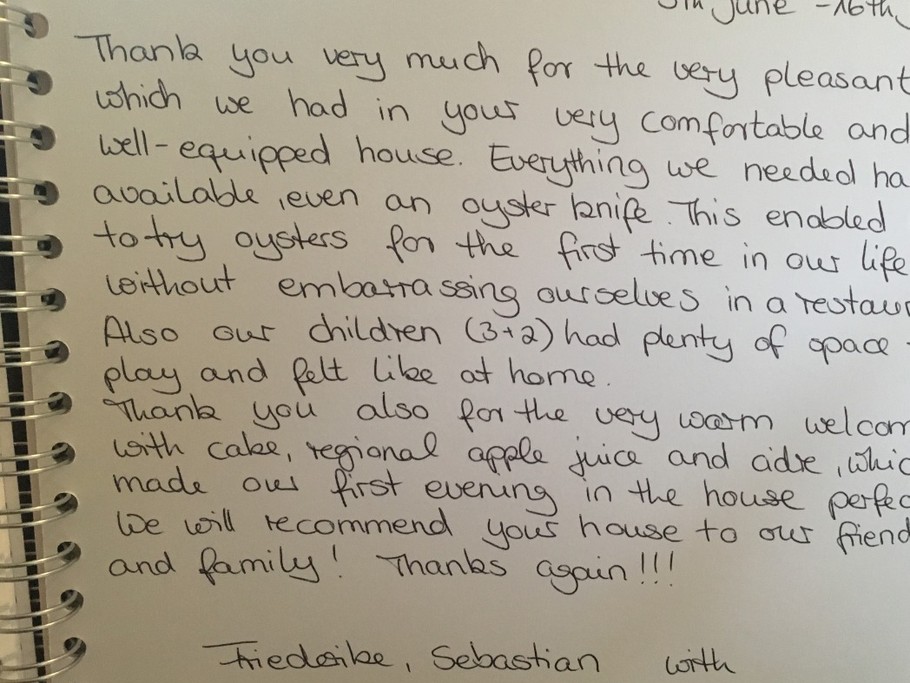 5th June - 16th
Thank you very much for the very pleasant
which we had in your very comfortable and
well-equipped house. Everything we needed ha
available, even an oyster knife. This enabled
to try oysters for the first time in our life
without embarrassing ourselves in a restaur
Also our children (3+2) had plenty of space
play and felt like at home.
Thank you also for the very warm welcom
with cake, regional apple juice and cidre, whic
made our first evening in the house perfec
We will recommend your house to our friend
and family! Thanks again!!!
Friederike, Sebastian with